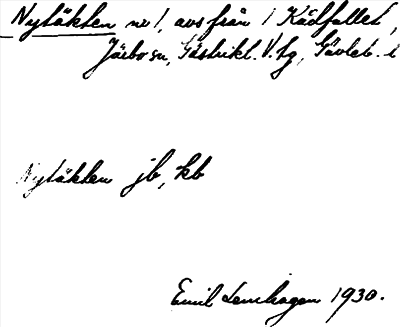 Nytäkten nr 1, avs från 1 Kådfallet,
Järbo sn, Gästrikl. V. tg, Gävleb. l
Nytäkten jb, kb
Emil Lenhagen 1930.